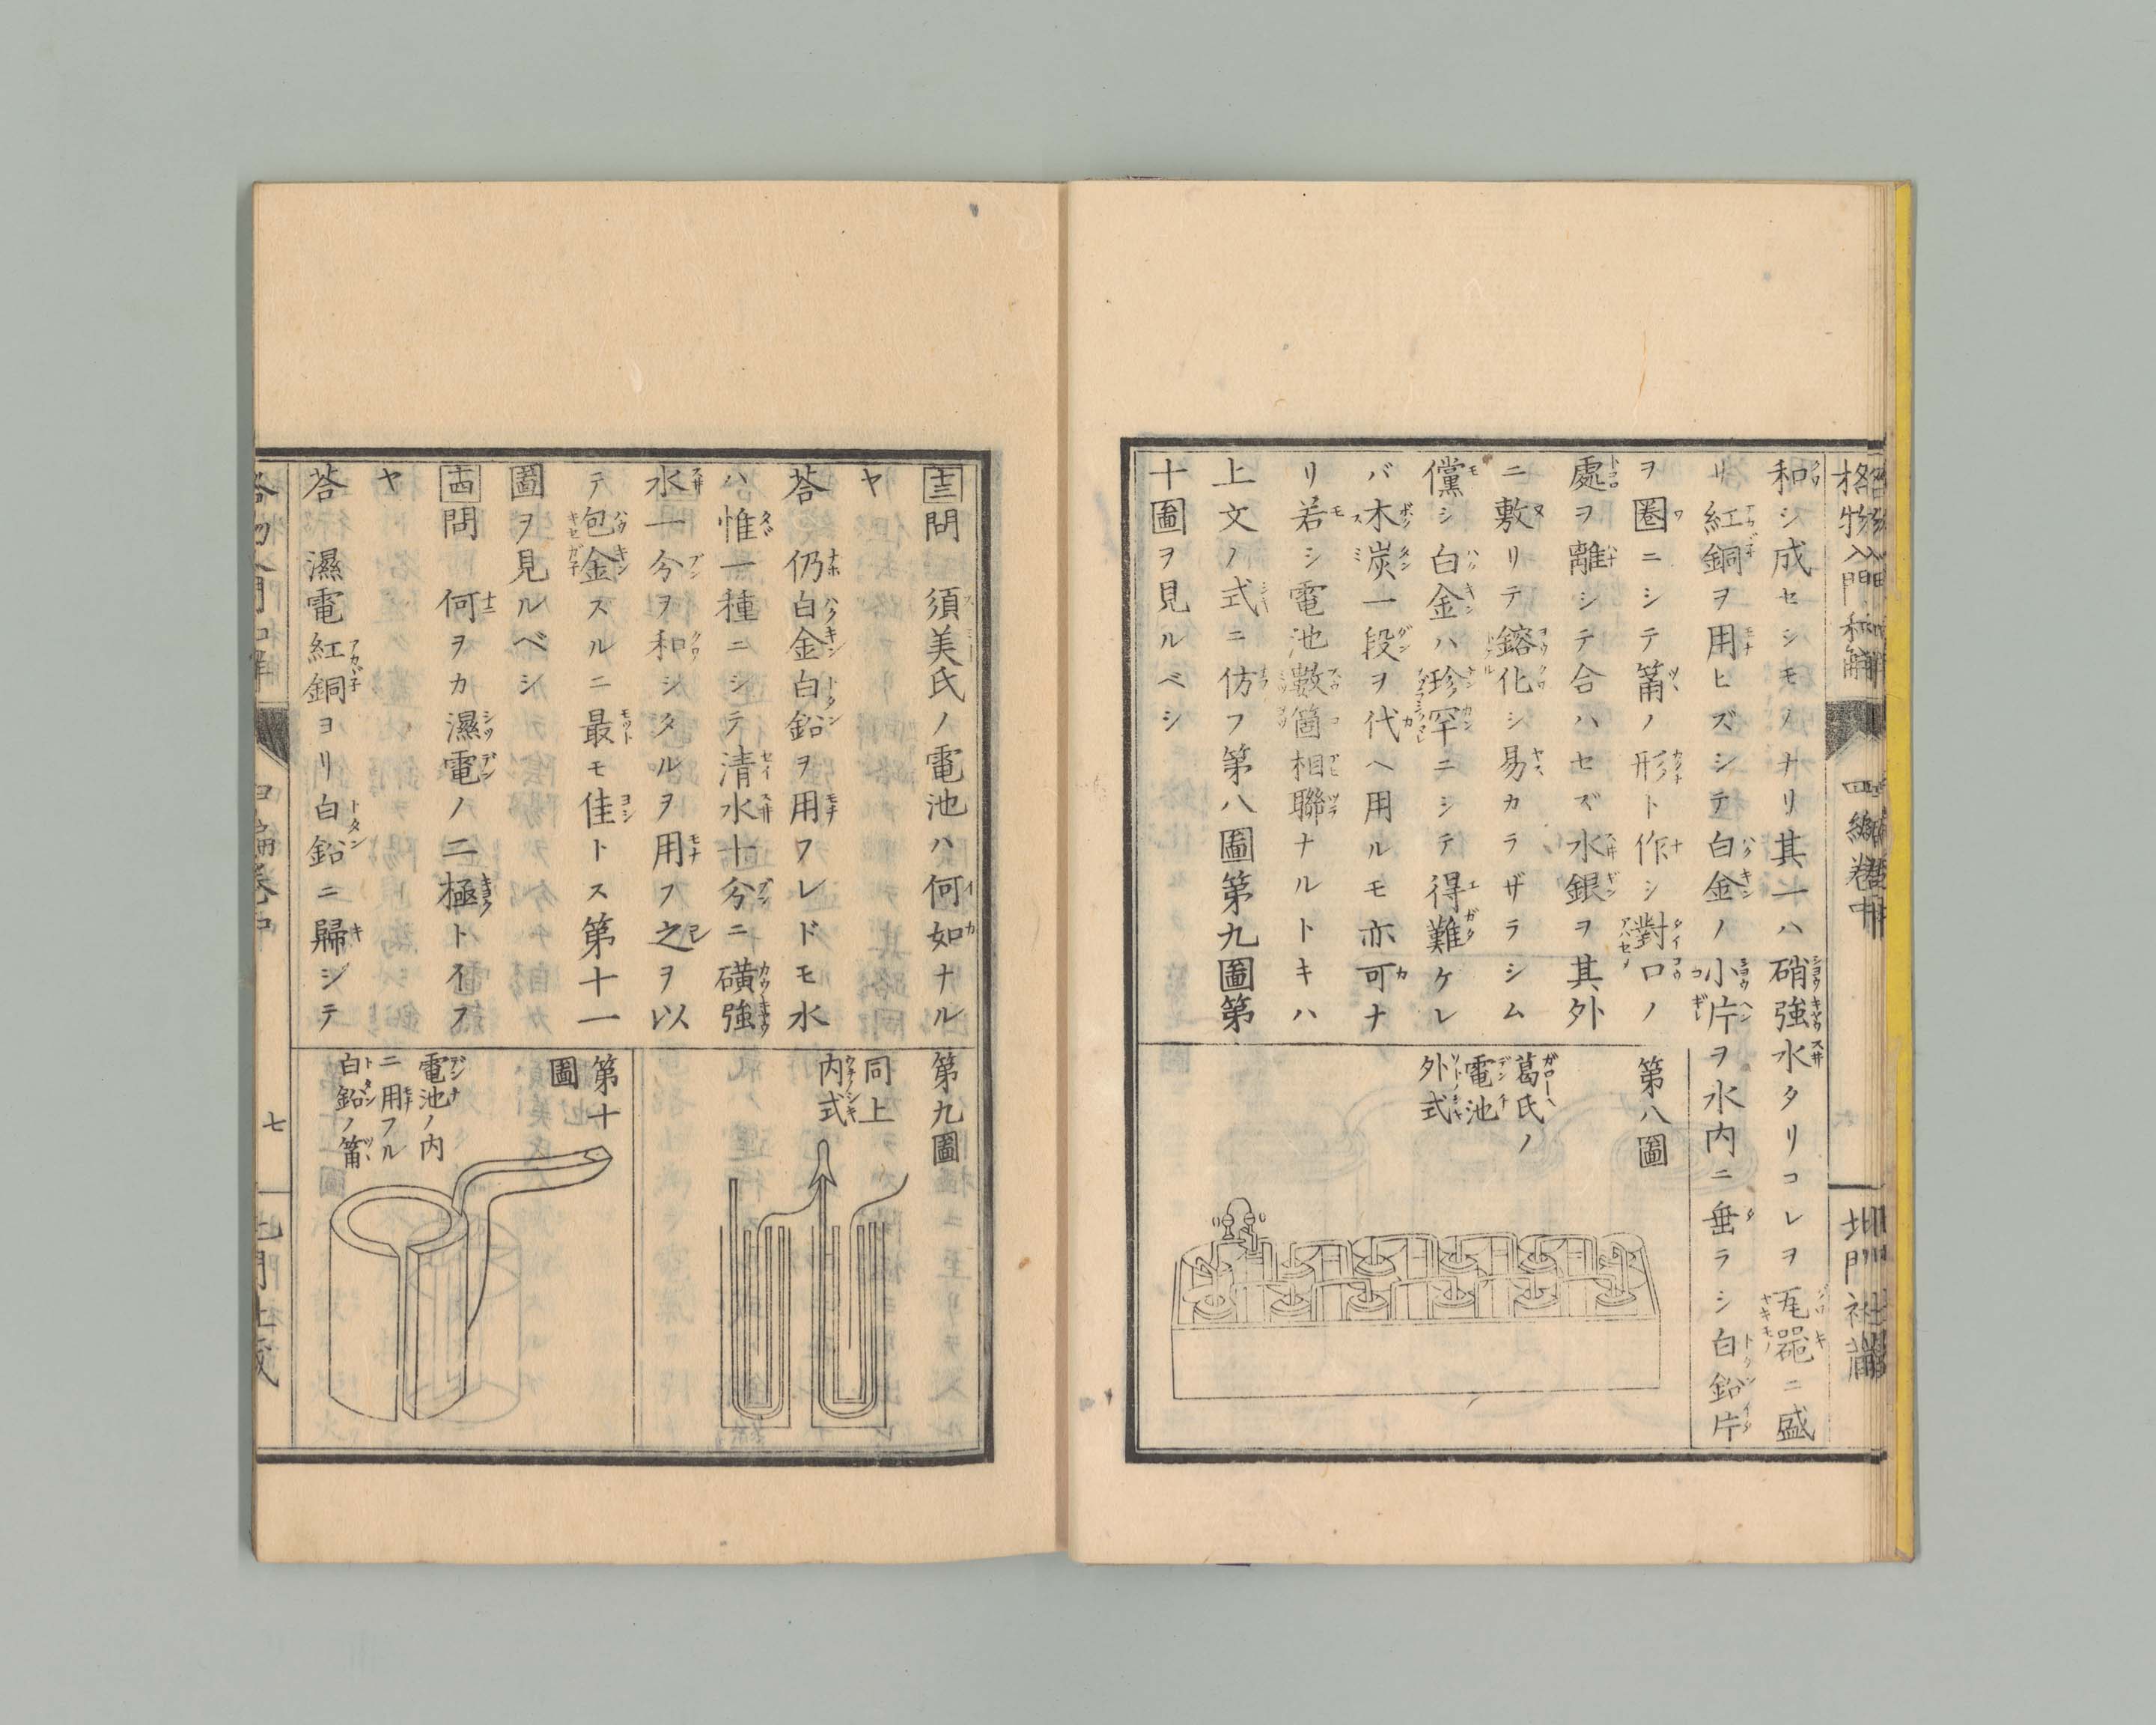 格物入門和解
四編卷中
北門社藏
和シ成セシモノナリ其一ハ硝強水タリコレヲ瓦器ニ盛
リ紅銅ヲ用ヒズシテ白金ノ小片ヲ水内ニ垂ラシ白鉛片
ヲ圏ニシテ筩ノ形ト作シ對口ノ
處ヲ離シテ合ハセズ水銀ヲ其外
ニ敷リテ鎔化シ易カラザラシム
儻シ白金ハ珍罕ニシテ得難ケレ
バ木炭一段ヲ代ヘ用ルモ亦可ナ
リ若シ電池數箇相聯ナルトキハ
上文ノ式ニ仿フ第八圖第九圖第
十圖ヲ見ルベシ
第八圖
葛氏ノ
電池
外式
十三問 須美氏ノ電池ハ何如ナル
ヤ
荅 仍白金白鉛ヲ用フレドモ水
ハ惟一種ニシテ清水十分ニ磺強
水一分ヲ和シタルヲ用フ之ヲ以
テ包金スルニ最モ佳トス第十一
圖ヲ見ルベシ
十四問 何ヲカ濕電ノ二極ト イフ
ヤ
荅 濕電紅銅ヨリ白鉛ニ歸シテ
第九圖
同上
内式
第十
圖
電池ノ内
ニ用フル
白鉛ノ筩
七